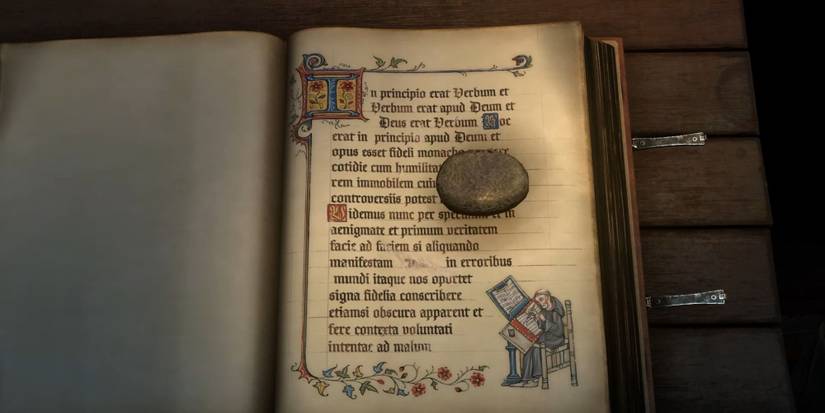 In principio erat Verbum et
Verbum erat apud Deum et
Deus erat Verbum Hoc
erat in principio apud Deum et
opus esset fideli
cotidie cum
rem immobilem
controversiis potest
Videmus nunc per in
aenigmate et primum veritatem
facie ad faciem si aliquando
manifestam in erroribus
mundi itaque nos oportet
signa fidelia conscribere
etiamsi obscura apparent et
fere contexta voluntati
intentae ad malum